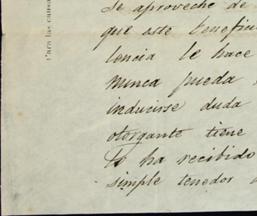 se aproveche de
que este benefici
lencia le hace
nunca pueda
inducirse duda
otorgante tiene
to ha recibido
simple tenedor